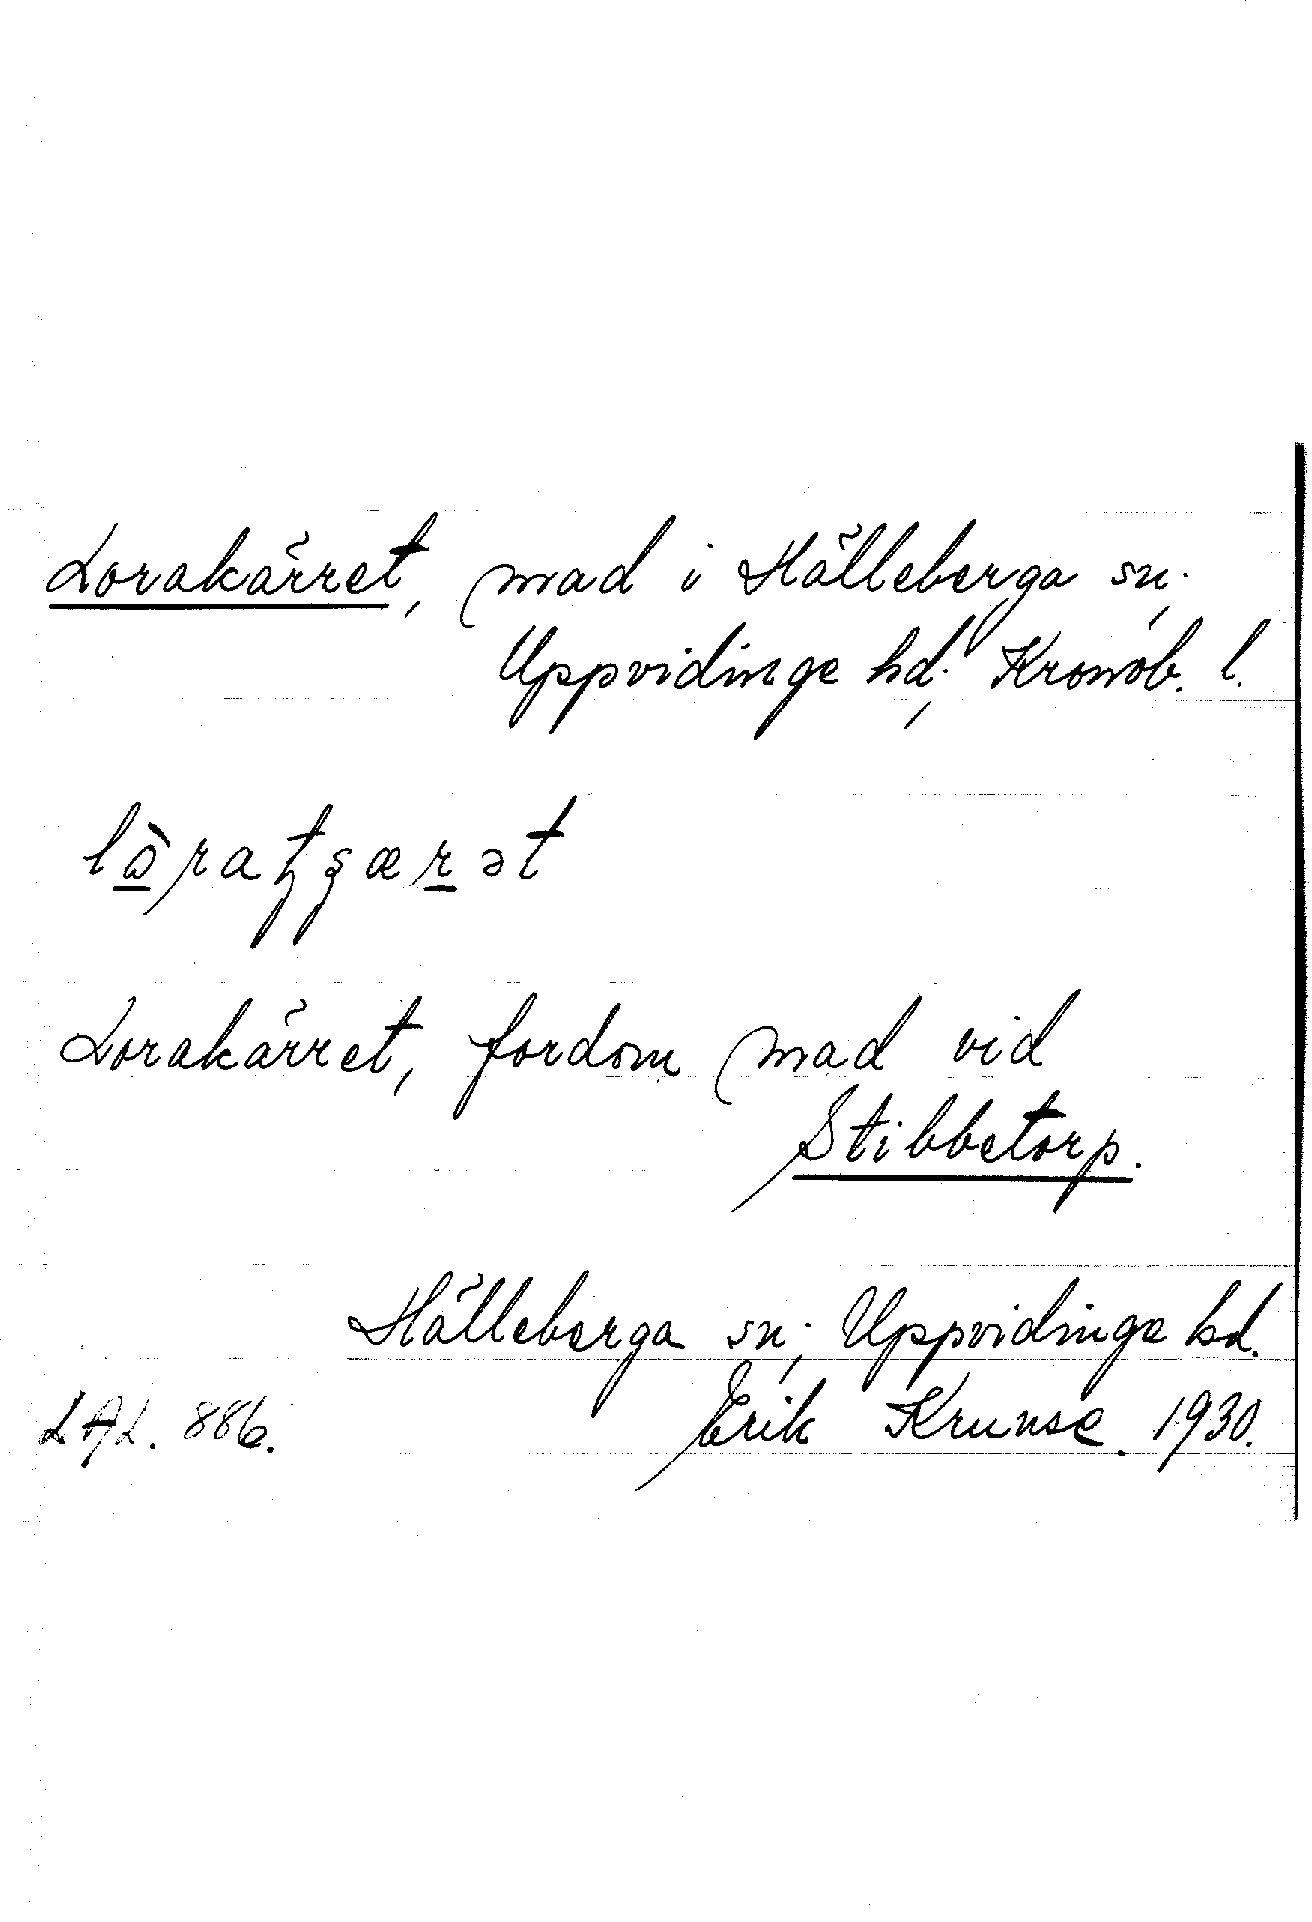 Lorakärret, mad i Hälleberga sn.,
Uppvidinge hd., Kronob. l.
Lorakärret, fordom mad vid
Stibbetorp.
Hälleberga sn., Uppvidinge hd.
LAL. 886. Erik Krunse. 1930.